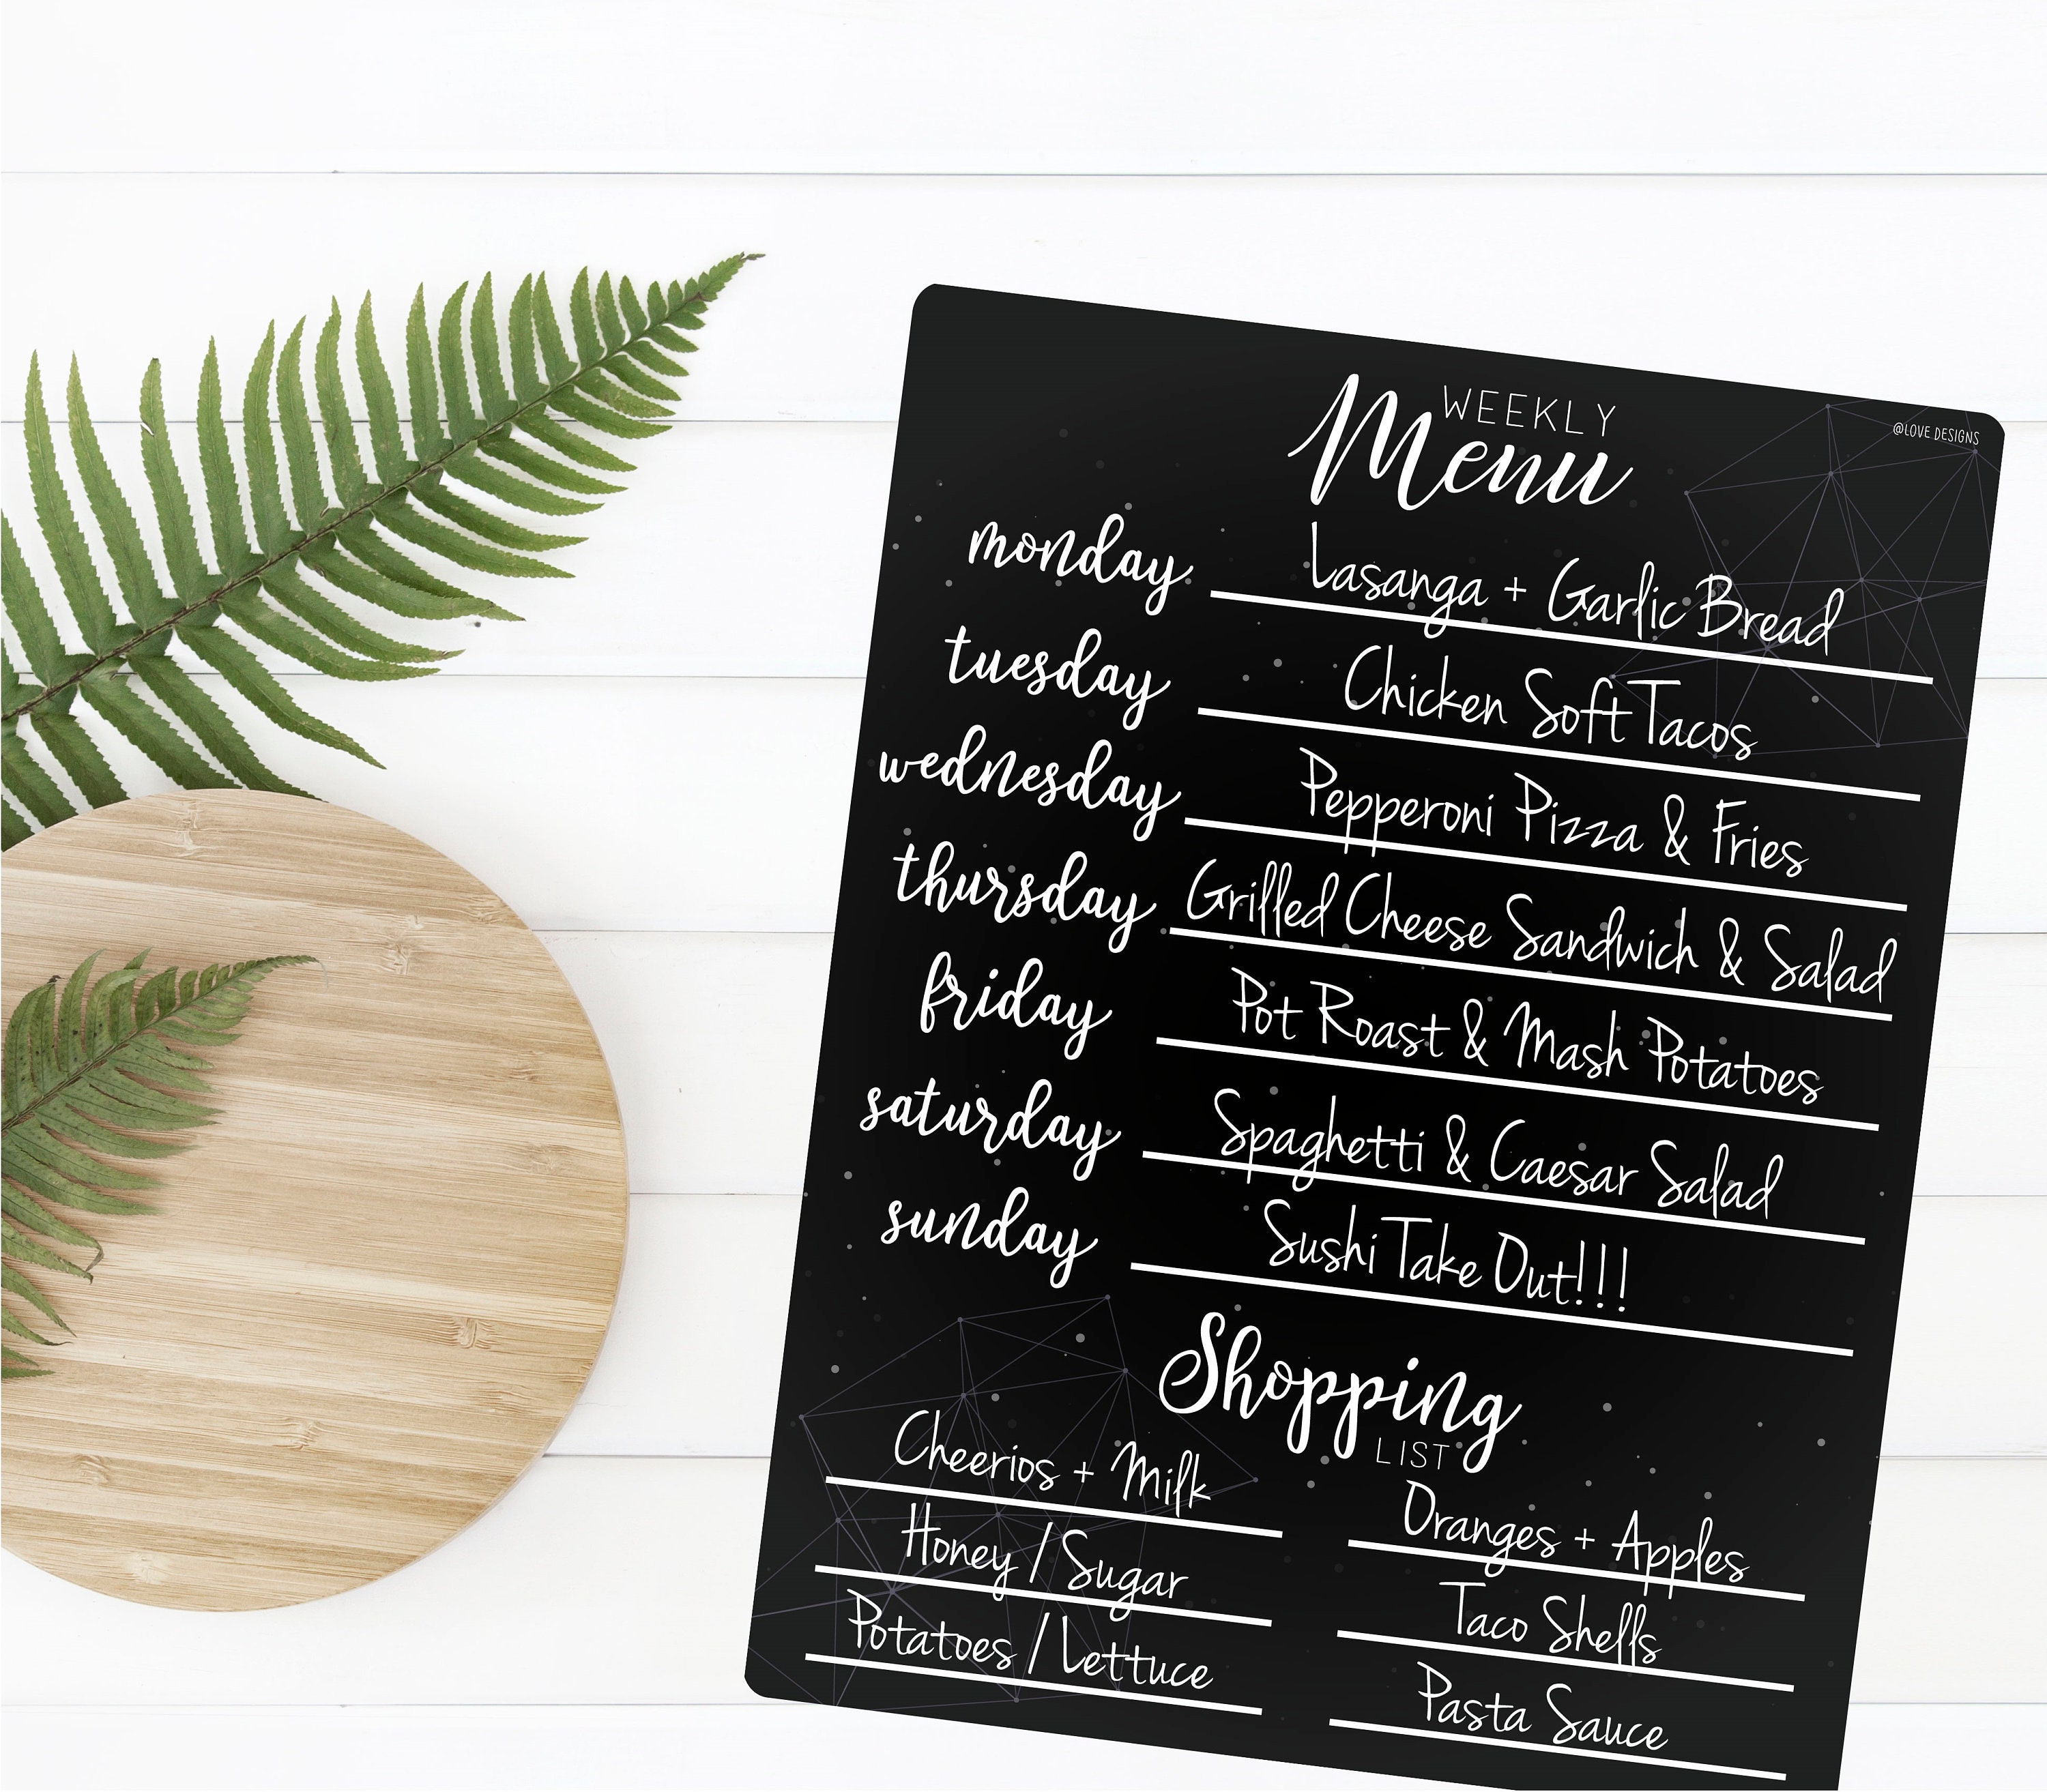 WEEKLY
Menu
@LOVE DESIGNS
monday Lasanga + Garlic Bread
tuesday Chicken Soft Tacos
wednesday Pepperoni Pizza & Fries
thursday Grilled Cheese Sandwich & Salad
friday Pot Roast & Mash Potatoes
saturday Spaghetti & Caesar Salad
sunday Sushi Take Out!!!
Shopping
LIST
Cheerios + Milk
Oranges + Apples
Honey / Sugar
Taco Shells
Potatoes / Lettuce
Pasta Sauce